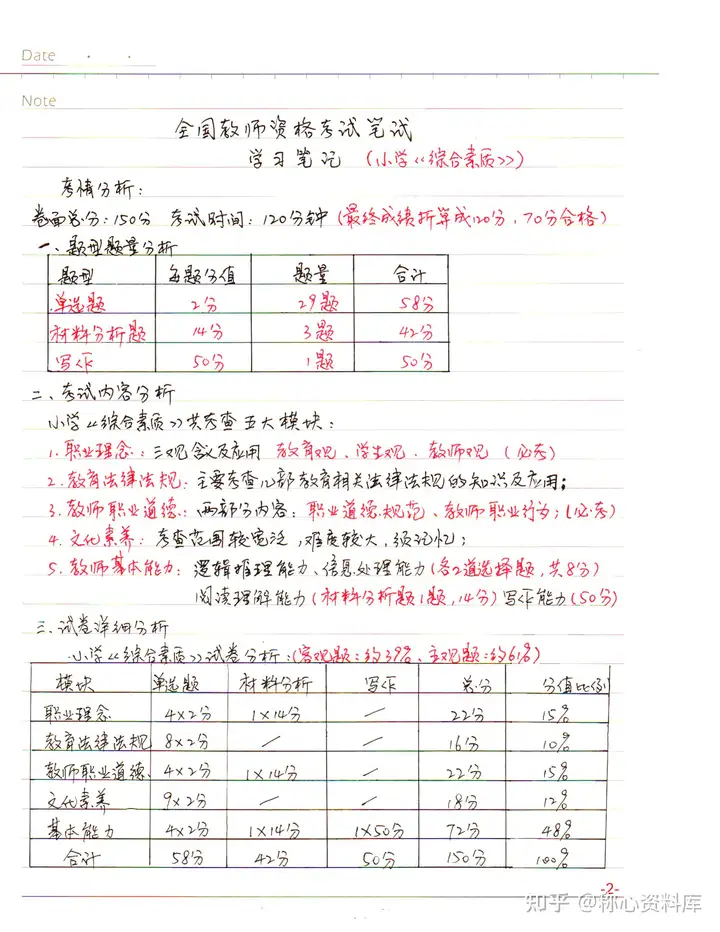 Date · ·
Note
全国教师资格考试笔试
学习笔记 (小学《综合素质》)
考情分析:
卷面总分:150分 考试时间:120分钟 (最终成绩折算成120分,70分合格)
一、题型题量分析
题型 每题分值 题量 合计
单选题 2分 29题 58分
材料分析题 14分 3题 42分
写作 50分 1题 50分
二、考试内容分析
小学《综合素质》共考查五大模块:
1.职业理念:三观含义及应用 教育观、学生观、教师观 (必考)
2.教育法律法规:主要考查几部教育相关法律法规的知识及应用;
3.教师职业道德:两部分内容:职业道德规范、教师职业行为;(必考)
4.文化素养:考查范围较宽泛,难度较大,须记忆;
5.教师基本能力:逻辑推理能力、信息处理能力(各2道选择题,共8分)
阅读理解能力(材料分析题1题,14分)写作能力(50分)
三.试卷详细分析
小学《综合素质》试卷分析:(客观题:约39%、主观题:约61%)
模块 单选题 材料分析 写作 总分 分值比例
职业理念 4×2分 1×14分 / 22分 15%
教育法律法规 8×2分 / / 16分 10%
教师职业道德 4×2分 1×14分 / 22分 15%
文化素养 9×2分 / / 18分 12%
基本能力 4×2分 1×14分 1×50分 72分 48%
合计 58分 42分 50分 150分 100%
-2-
知乎 @称心资料库